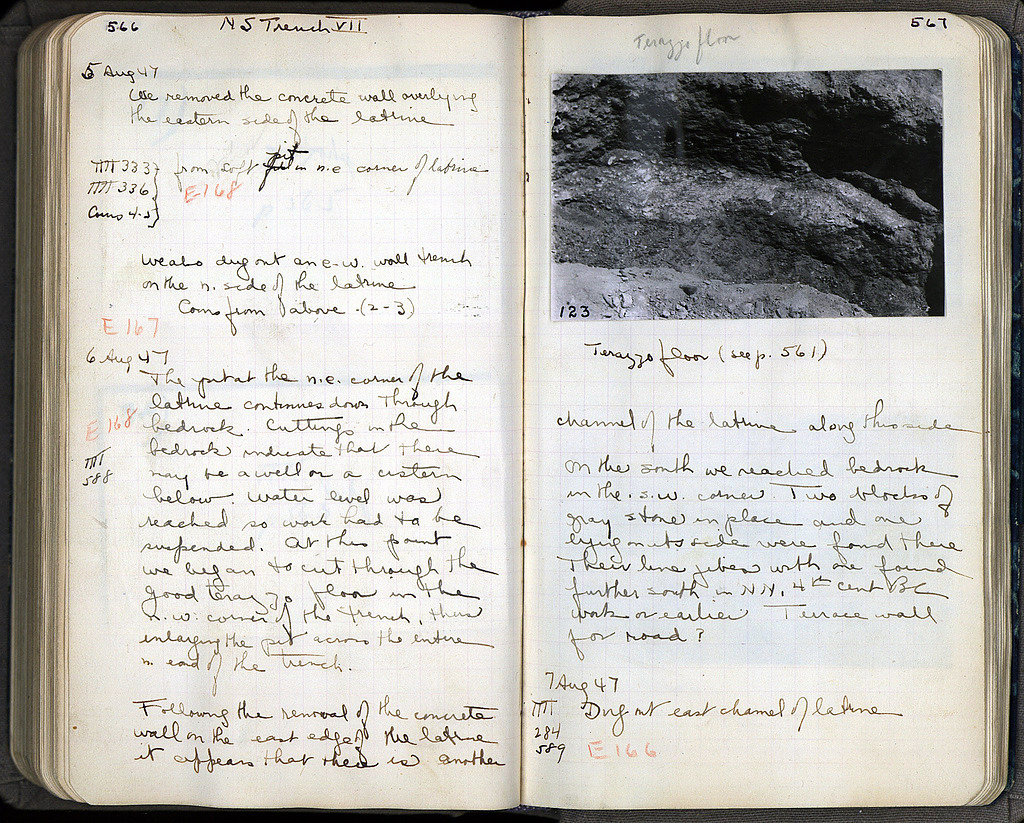 566
NS Trench VII
5 Aug 47
We removed the concrete wall overlying
the eastern side of the latrine
TTT 333} from soft pit in n.e corner of latrine
TTT 336} E168
Coins 4-5}
We also dug out an e-w. wall trench
on the n. side of the latrine
Coins from above (2-3)
E 167
6 Aug 47
The pit at the n.e. corner of the
latrine continues down through
E 168 bedrock. Cuttings in the
TTT bedrock indicate that there
588 may be a well or a cistern
below. Water level was
reached so work had to be
suspended. At this point
we began to cut through the
good terazzo floor in the
n.w. corner of the trench, thus
enlarging the pit across the entire
n. end of the trench.
Following the removal of the concrete
wall on the east edge of the latrine
it appears that there is another
567
Terazzo floor
123
Terazzo floor (see p. 561)
channel of the latrine along this side
On the south we reached bedrock
in the s.w. corner. Two blocks of
gray stone in place and one
lying on its side were found there
Their line jibes with one found
further south in NN, 4th cent BC
work or earlier Terrace wall
for road?
7 Aug 47
TTT Dug out east channel of latrine
284
589 E 166